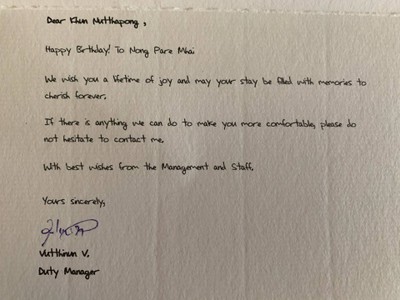 Dear Khun Nutthapong,
Happy Birthday! To Nong Pare Mhai
We wish you a lifetime of joy and may your stay be filled with memories to
cherish forever.
If there is anything we can do to make you more comfortable, please do
not hesitate to contact me.
With best wishes from the Management and Staff.
Yours sincerely,
Vutthinun V.
Duty Manager